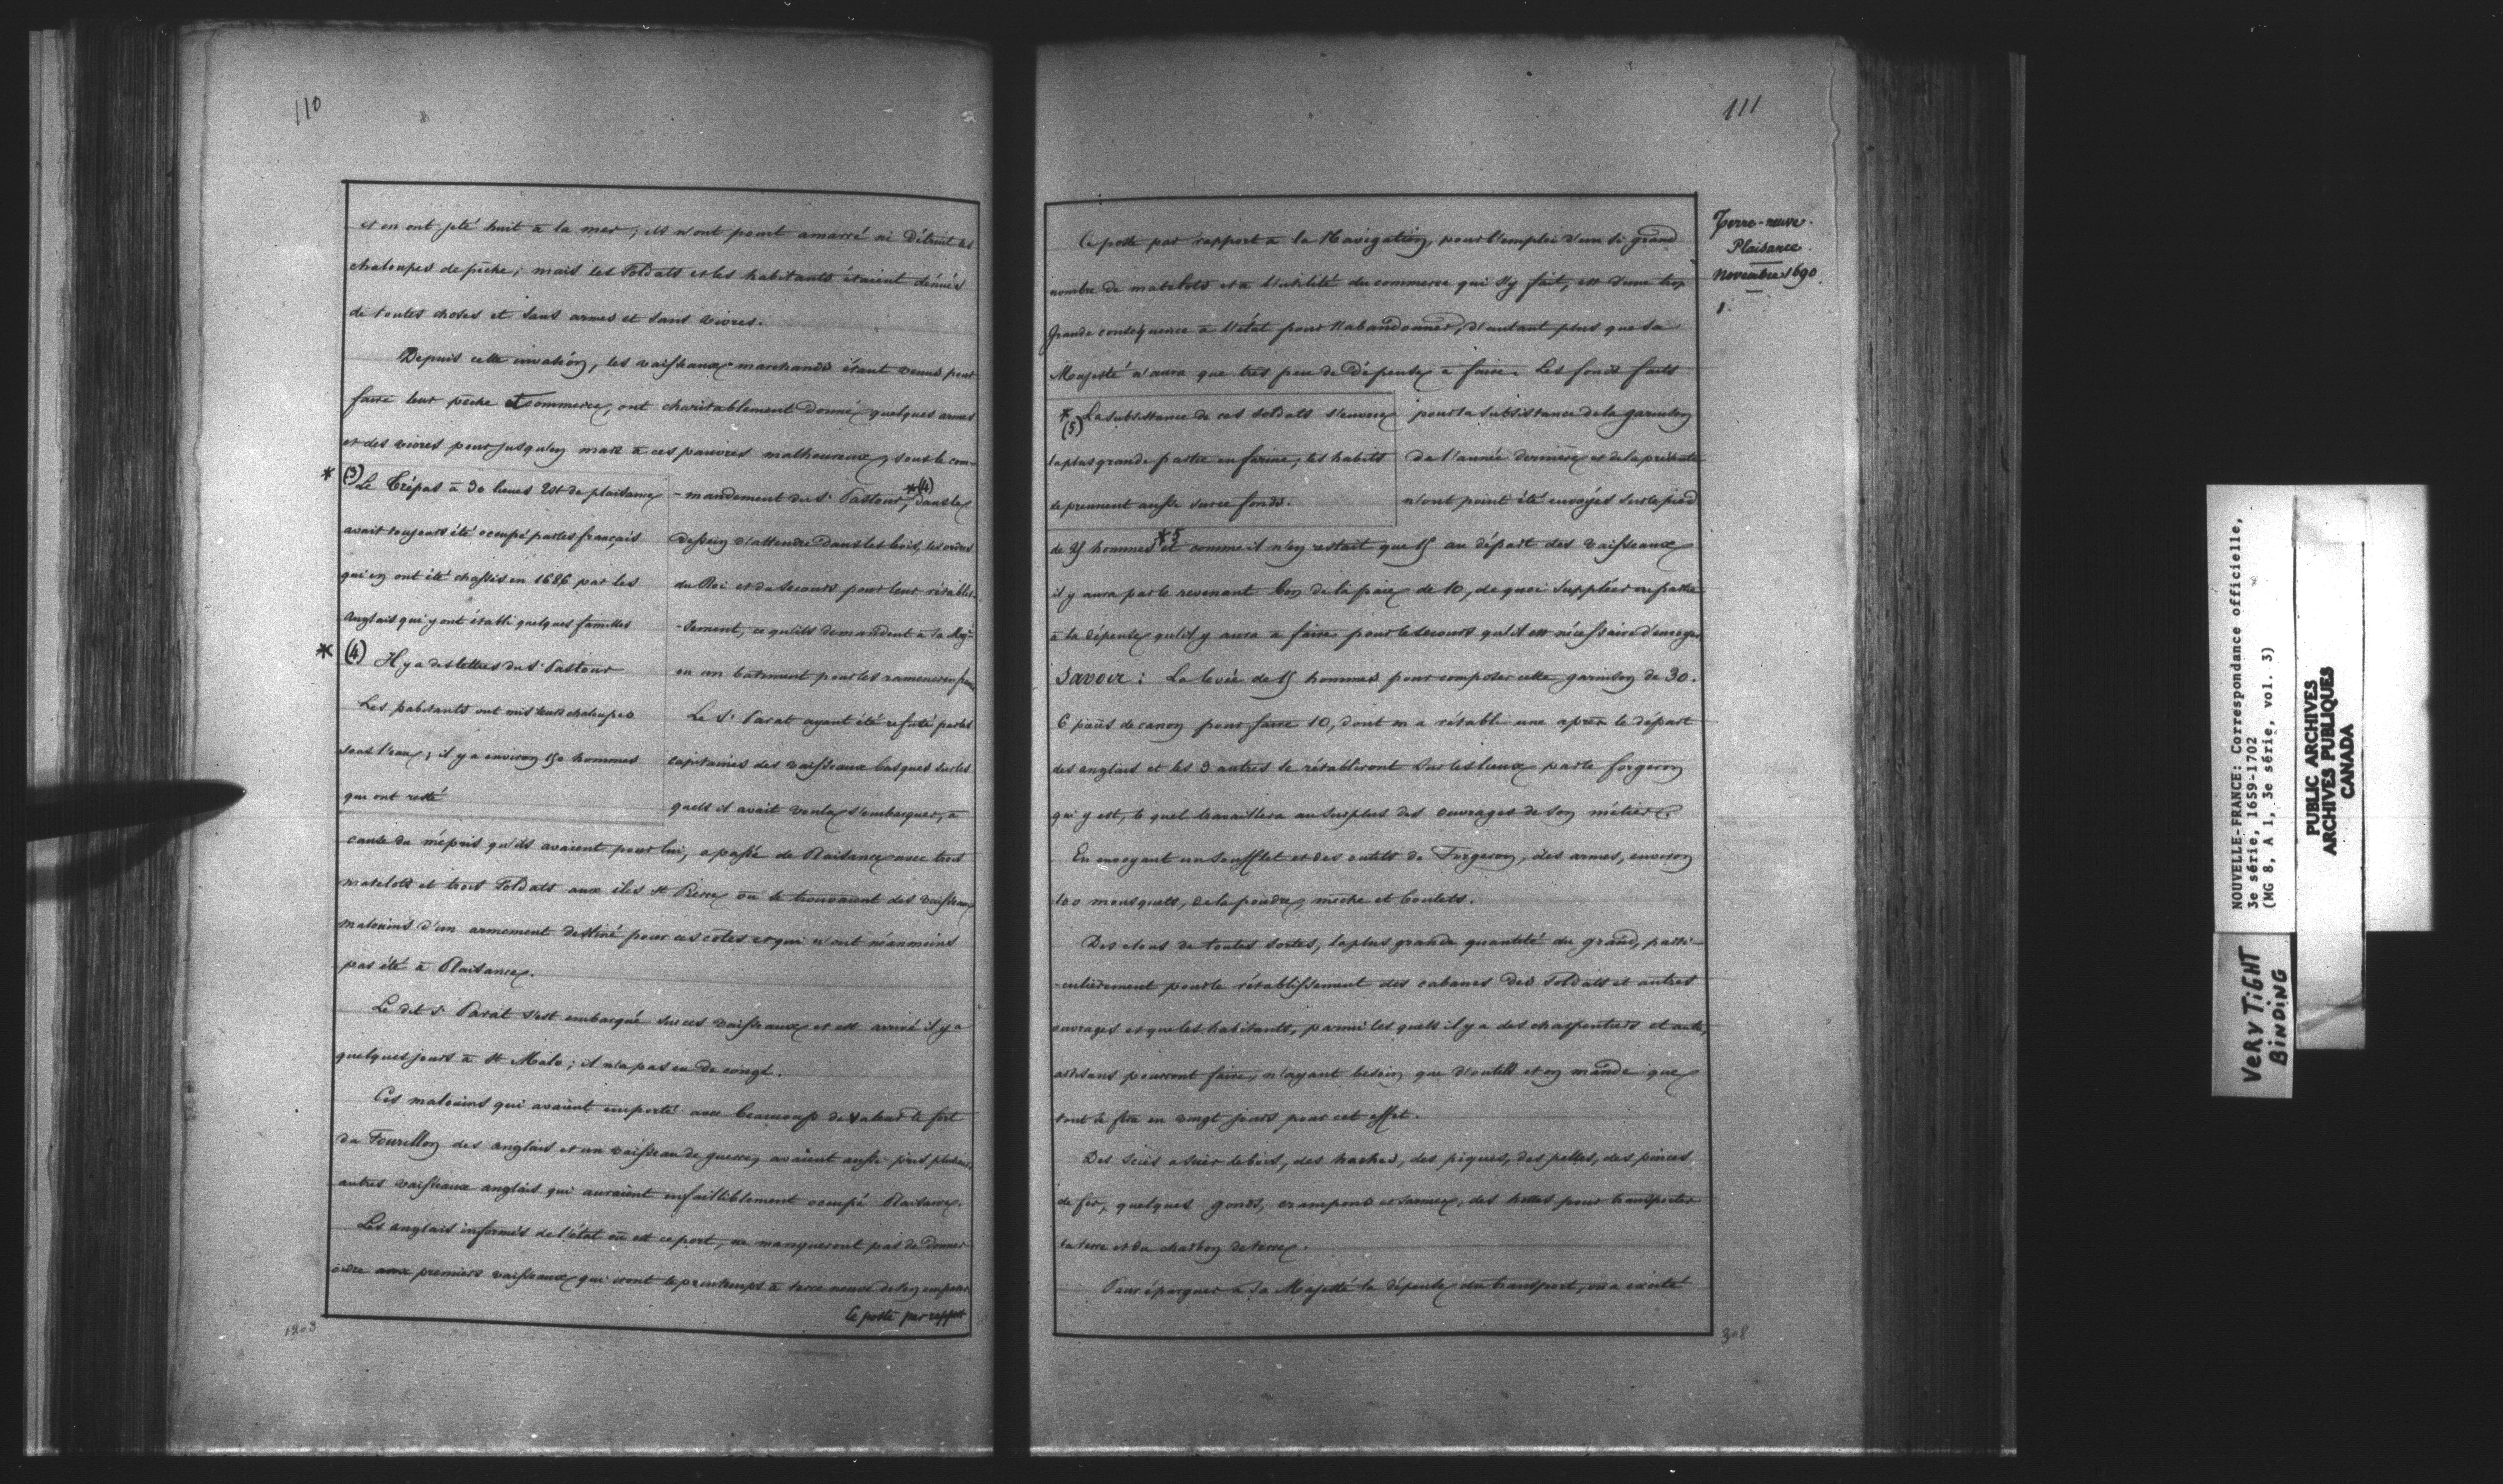 110
et en ont jeté huit à la mer ; ils n'ont point amarré ni détruit les
chaloupes de pêche ; mais les Soldats et les habitants étaient dénués
de toutes choses et sans armes et sans vivres.
Depuis cette invasion, les vaisseaux marchands étant venus pour
faire leur pêche et commerce, ont charitablement donné quelques armes
et des vivres pour jusqu'en mars à ces pauvres malheureux, sous le com-
* (3) Le Trépas à 30 lieues Est de plaisance
avait toujours été occupé par les français
qui en ont été chassés en 1686 par les
anglais qui y ont établi quelques familles
* (4) Il y a des lettres du Sr. Pastour
Les habitants ont mis leurs chaloupes
sous l'eau ; il y a environ 150 hommes
qui ont resté
-mandement du Sr. Pastour, *(4) dans le
dessein d'attendre dans les bois, les ordres
du Roi et du secours pour leur rétablis-
-sement, ce qu'ils demandent à Sa Maj-
ou un batiment pour les ramener en
Le Sr. Parat ayant été refusé par les
capitaines des vaisseaux basques sur les
quels il avait voulu s'embarquer, à
cause du mépris qu'ils avaient pour lui, a passé de Plaisance avec trois
matelots et trois Soldats aux iles St Pierre où se trouvaient des vaisseaux
malouins d'un armement destiné pour ces côtes et qui n'ont néanmoins
pas été à Plaisance.
Le dit Sr Parat s'est embarqué sur ces vaisseaux et est arrivé il y a
quelques jours à St Malo ; il n'a pas eu de congé.
Ces malouins qui avaient emporté avec beaucoup de valeur le fort
du Fourillon des anglais et un vaisseau de guerre, avaient aussi pris plusieurs
autres vaisseaux anglais qui auraient infailliblement occupé Plaisance.
Les anglais informés de l'état où est ce port, ne manqueront pas de donner
ordre aux premiers vaisseaux qui iront le printemps à terre neuve de s'en emparer
Ce poste par rapport
1203
111
Terre-neuve.
Plaisance.
Novembre 1690
1.
Ce poste par rapport à la Navigation, pour l'emploi d'un si grand
nombre de matelots et à l'utilité du commerce qui s'y fait, est d'une trop
grande conséquence à l'état pour l'abandonner, d'autant plus que Sa
Majesté n'aura que très peu de dépense à faire. Les fonds faits
* (5) La subsistance de ces soldats s'envoie
la plus grande partie en farine ; les habits
se prennent aussi sur ce fonds.
pour la subsistance de la garnison
de l'année dernière et de la présente
n'ont point été envoyés sur le pied
de 25 hommes *5 et comme il n'en restait que 15 au départ des vaisseaux
il y aura par le revenant bon de la paie de 10, de quoi suppléer en partie
à la dépense qu'il y aura à faire pour le secours qu'il est nécessaire d'envoyer
Savoir : La levée de 15 hommes pour composer cette garnison de 30.
6 pièces de canon pour faire 10, dont on a rétabli une après le départ
des anglais et les 3 autres se rétabliront sur les lieux par le forgeron
qui y est, le quel travaillera au surplus des ouvrages de son métier
En envoyant un soufflet et des outils de Forgeron, des armes, environ
100 mousquets, de la poudre, mèche et boulets.
Des clous de toutes sortes, la plus grande quantité du grand, parti-
-culièrement pour le rétablissement des cabanes des Soldats et autres
ouvrages et que les habitants, parmi les quels il y a des charpentiers et autres
artisans pourront faire, n'ayant besoin que d'outils et on mande que
tout se fera en vingt jours pour cet effet.
Des scies à scier le bois, des haches, des piques, des pelles, des pinces
de fer, quelques gonds, crampons et des hottes pour transporter
la terre et du charbon de terre.
Pour épargner à Sa Majesté la dépense du transport, on a excité
308
NOUVELLE-FRANCE: Correspondance officielle,
3e série, 1659-1702
(MG 8, A 1, 3e série, vol. 3)
PUBLIC ARCHIVES
ARCHIVES PUBLIQUES
CANADA
VERY TIGHT
BINDING